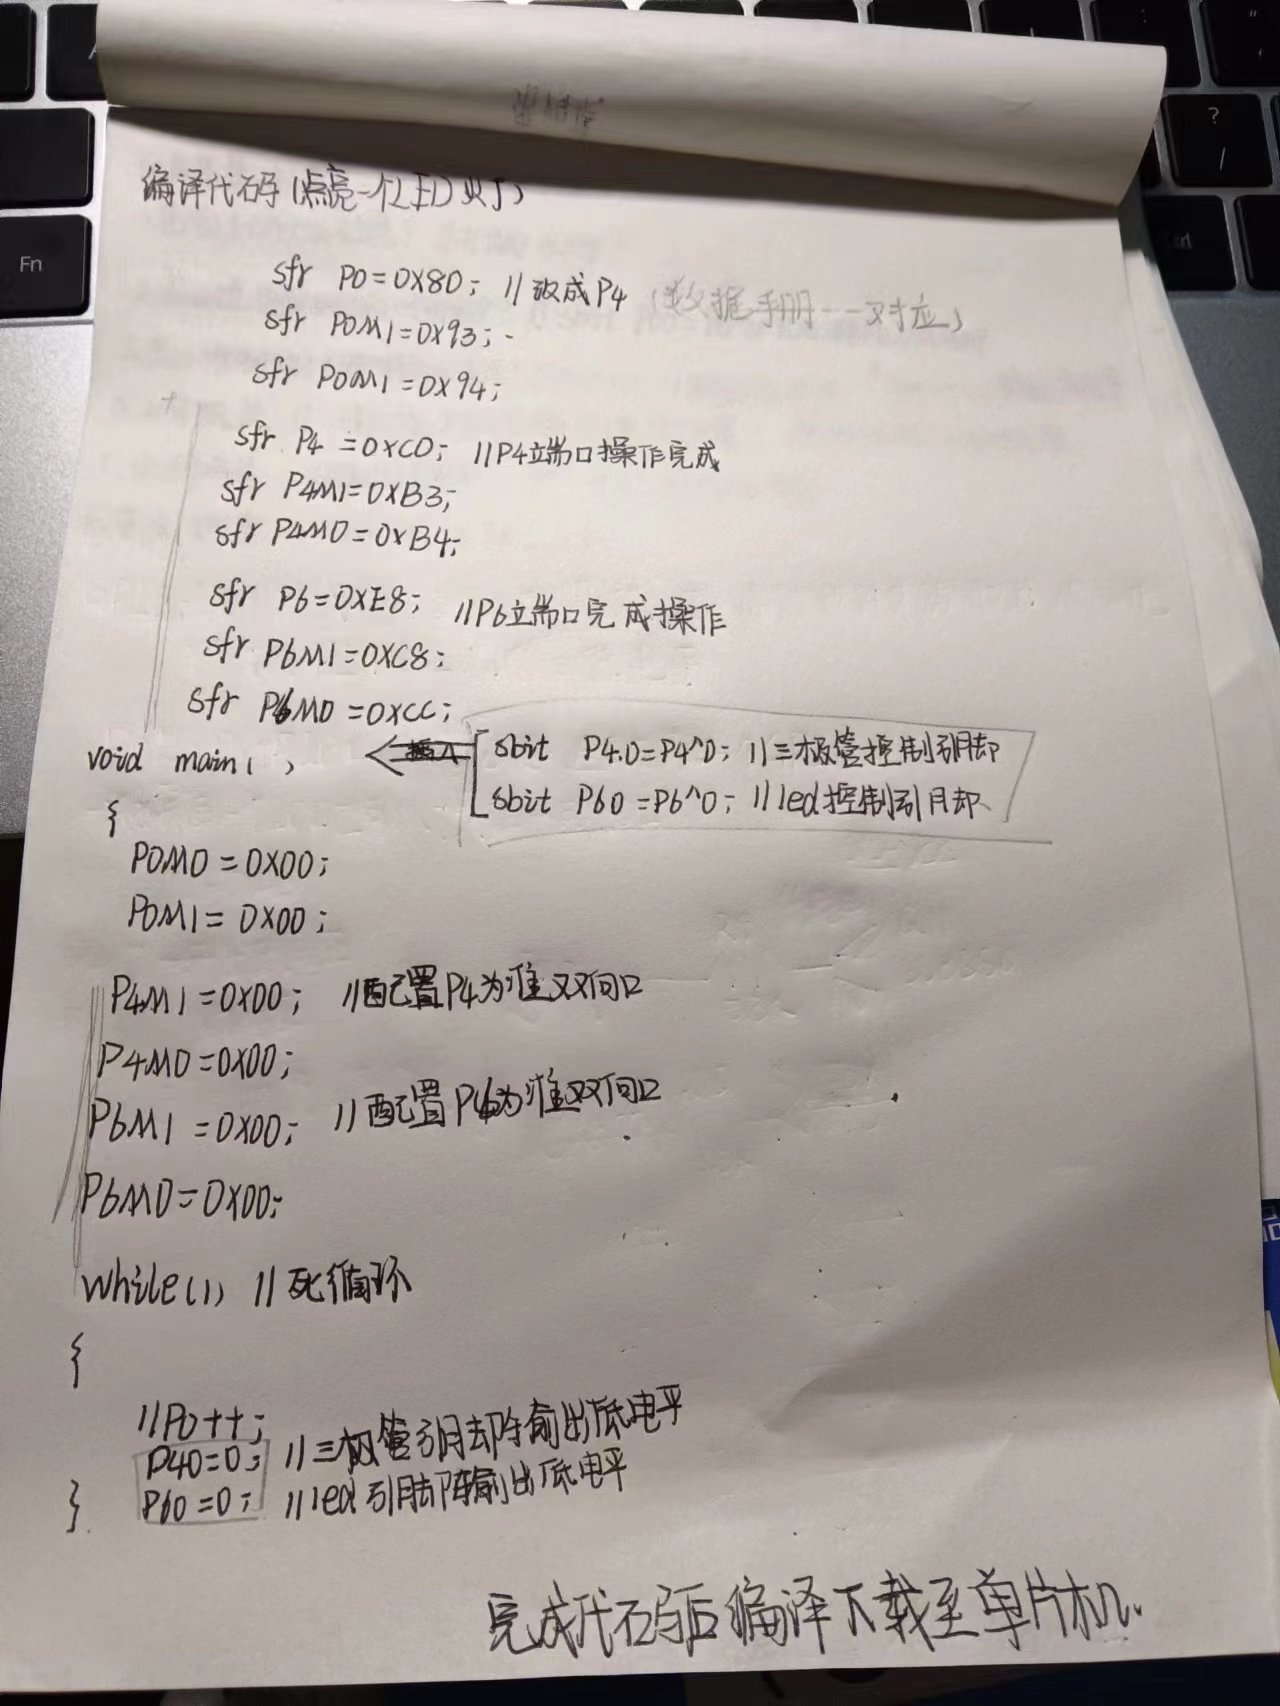 编译代码(点亮一个LED灯)
sfr P0=0X80; //改成P4 (数据手册一一对应)
sfr P0M1=0X93;
sfr P0M1=0X94;
sfr P4=0XC0; //P4立端口操作完成
sfr P4M1=0XB3;
sfr P4M0=0XB4;
sfr P6=0XE8; //P6立端口完成操作
sfr P6M1=0XC8;
sfr P6M0=0XCC;
void main( )
插入
sbit P4.0=P4^0; //三极管控制引脚
sbit P60=P6^0; //led控制引脚
{
P0M0=0X00;
P0M1=0X00;
P4M1=0X00; //配置P4为准双向口
P4M0=0X00;
P6M1=0X00; //配置P6为准双向口
P6M0=0X00;
while(1) //死循环
{
//P0++;
P40=0; //三极管引脚输出低电平
P60=0; //led引脚输出低电平
}
完成代码后编译下载至单片机.
Fn
?
/
Ctrl